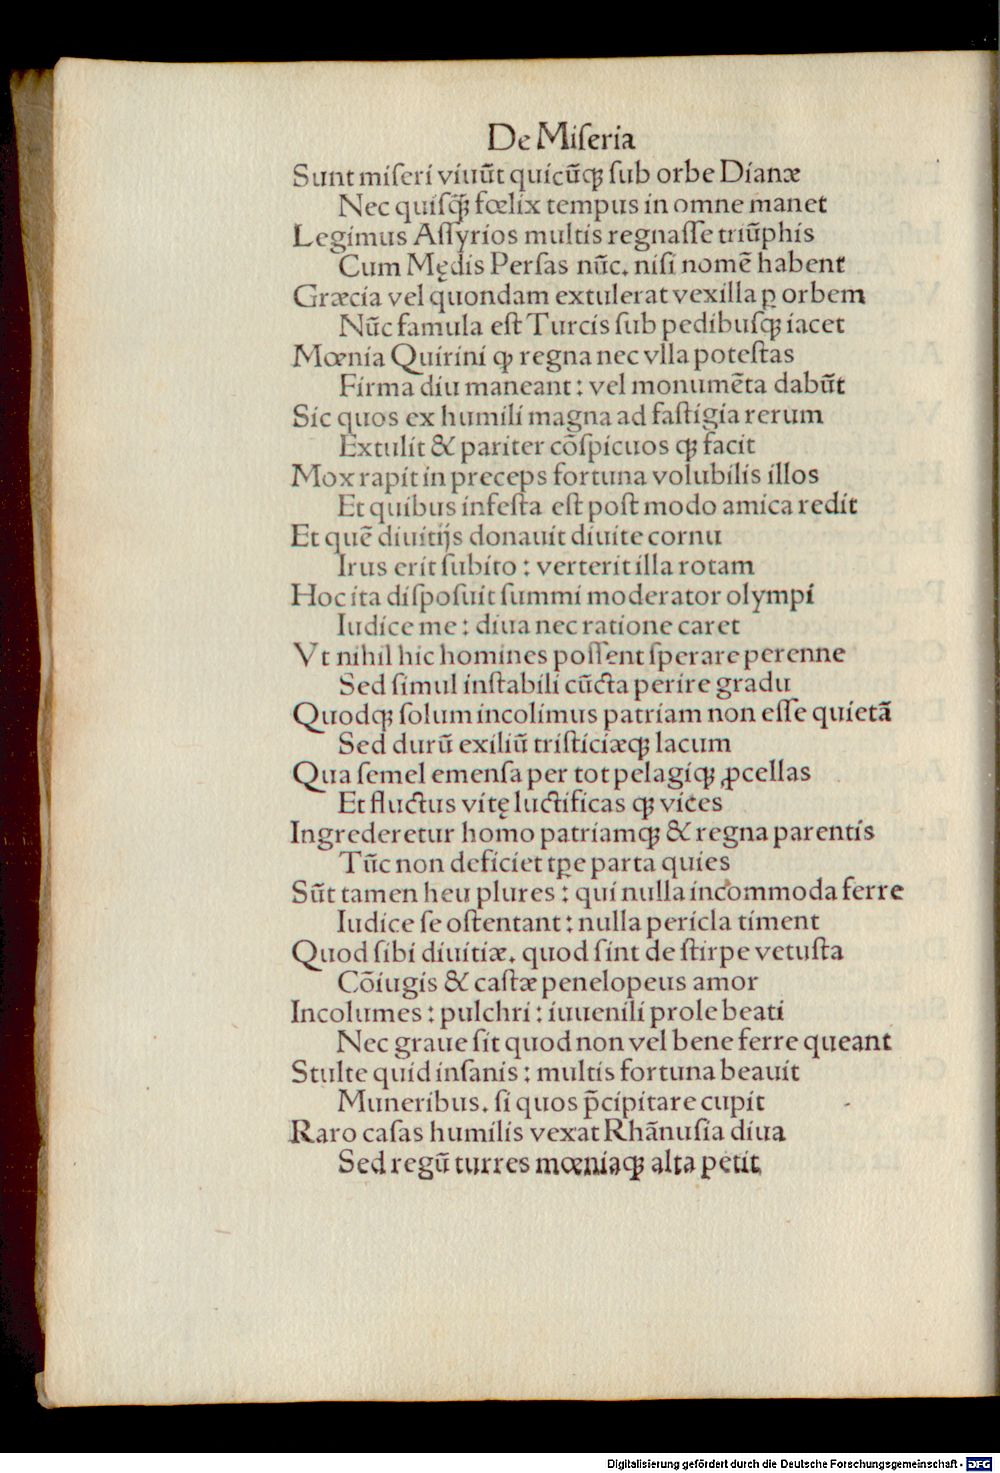 De Miſeria
Sunt miſeri viuūt quicūqꝫ ſub orbe Dianæ
Nec quiſq̄ꝫ fœlix tempus in omne manet
Legimus Aſſyrios multis regnaſſe triūphis
Cum Mędis Perſas nūc. niſi nomē habent
Græcia vel quondam extulerat vexilla ꝑ orbem
Nūc famula eſt Turcis ſub pedibuſqꝫ iacet
Mœnia Quirini ꝙ regna nec vlla poteſtas
Firma diu maneant : vel monumēta dabūt
Sic quos ex humili magna ad faſtigia rerum
Extulit & pariter cōſpicuos qꝫ facit
Mox rapit in preceps fortuna volubilis illos
Et quibus infeſta eſt poſt modo amica redit
Et quē diuitijs donauit diuite cornu
Irus erit ſubito : verterit illa rotam
Hoc ita diſpoſuit ſummi moderator olympi
Iudice me : diua nec ratione caret
Vt nihil hic homines poſſent ſperare perenne
Sed ſimul inſtabili cūcta perire gradu
Quodqꝫ ſolum incolimus patriam non eſſe quietā
Sed durū exiliū triſticiæqꝫ lacum
Qua ſemel emenſa per tot pelagiqꝫ ꝓcellas
Et fluctus vitę luctificas qꝫ vices
Ingrederetur homo patriamqꝫ & regna parentis
Tūc non deficiet tꝑe parta quies
Sūt tamen heu plures : qui nulla incommoda ferre
Iudice ſe oſtentant : nulla pericla timent
Quod ſibi diuitiæ. quod ſint de ſtirpe vetuſta
Cōiugis & caſtæ penelopeus amor
Incolumes : pulchri : iuuenili prole beati
Nec graue ſit quod non vel bene ferre queant
Stulte quid inſanis : multis fortuna beauit
Muneribus. ſi quos p̄cipitare cupit
Raro caſas humilis vexat Rhānuſia diua
Sed regū turres mœniaqꝫ alta petit.
Digitalisierung gefördert durch die Deutsche Forschungsgemeinschaft - DFG